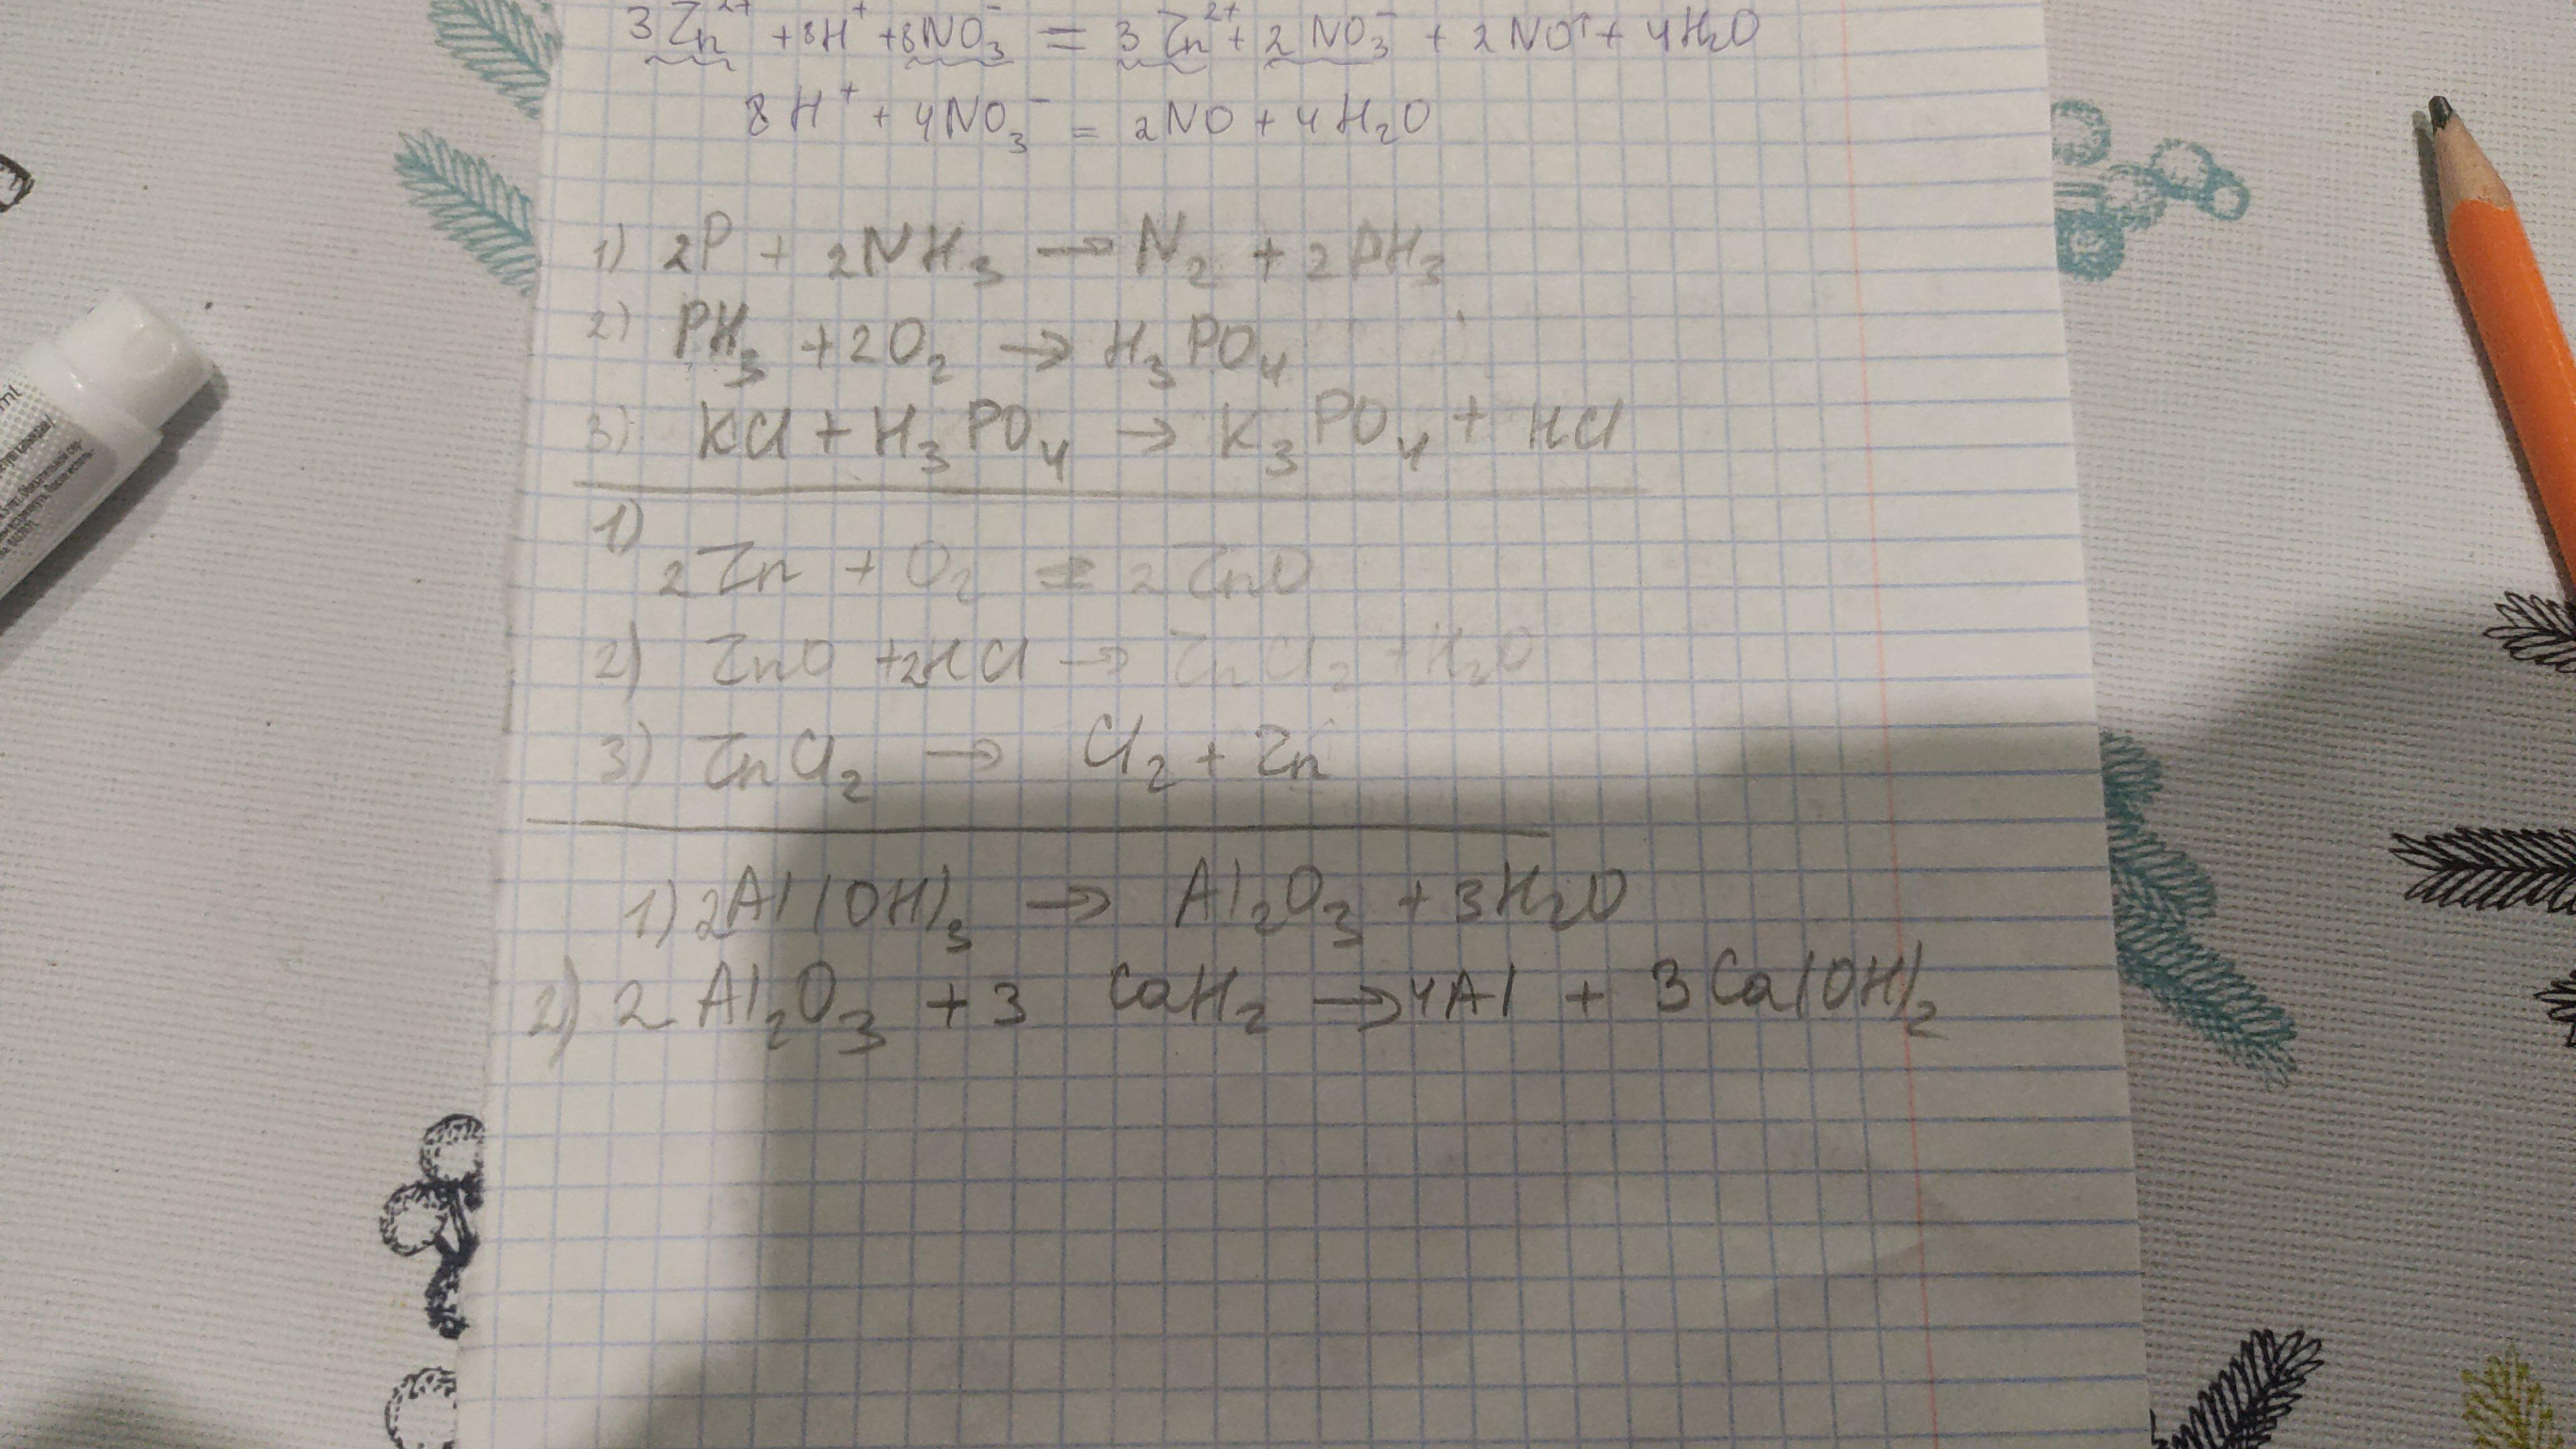 3Zn²⁺ + 8H⁺ + 8NO₃⁻ = 3Zn²⁺ + 2NO₃⁻ + 2NO↑ + 4H₂O
8H⁺ + 4NO₃⁻ = 2NO + 4H₂O
1) 2P + 2NH₃ → N₂ + 2PH₃
2) PH₃ + 2O₂ → H₃PO₄
3) KCl + H₃PO₄ → K₃PO₄ + HCl
1)
2Zn + O₂ = 2ZnO
2) ZnO + 2HCl → ZnCl₂ + H₂O
3) ZnCl₂ → Cl₂ + Zn
1) 2Al(OH)₃ → Al₂O₃ + 3H₂O
2) 2Al₂O₃ + 3 CaH₂ → 4Al + 3Ca(OH)₂
ml